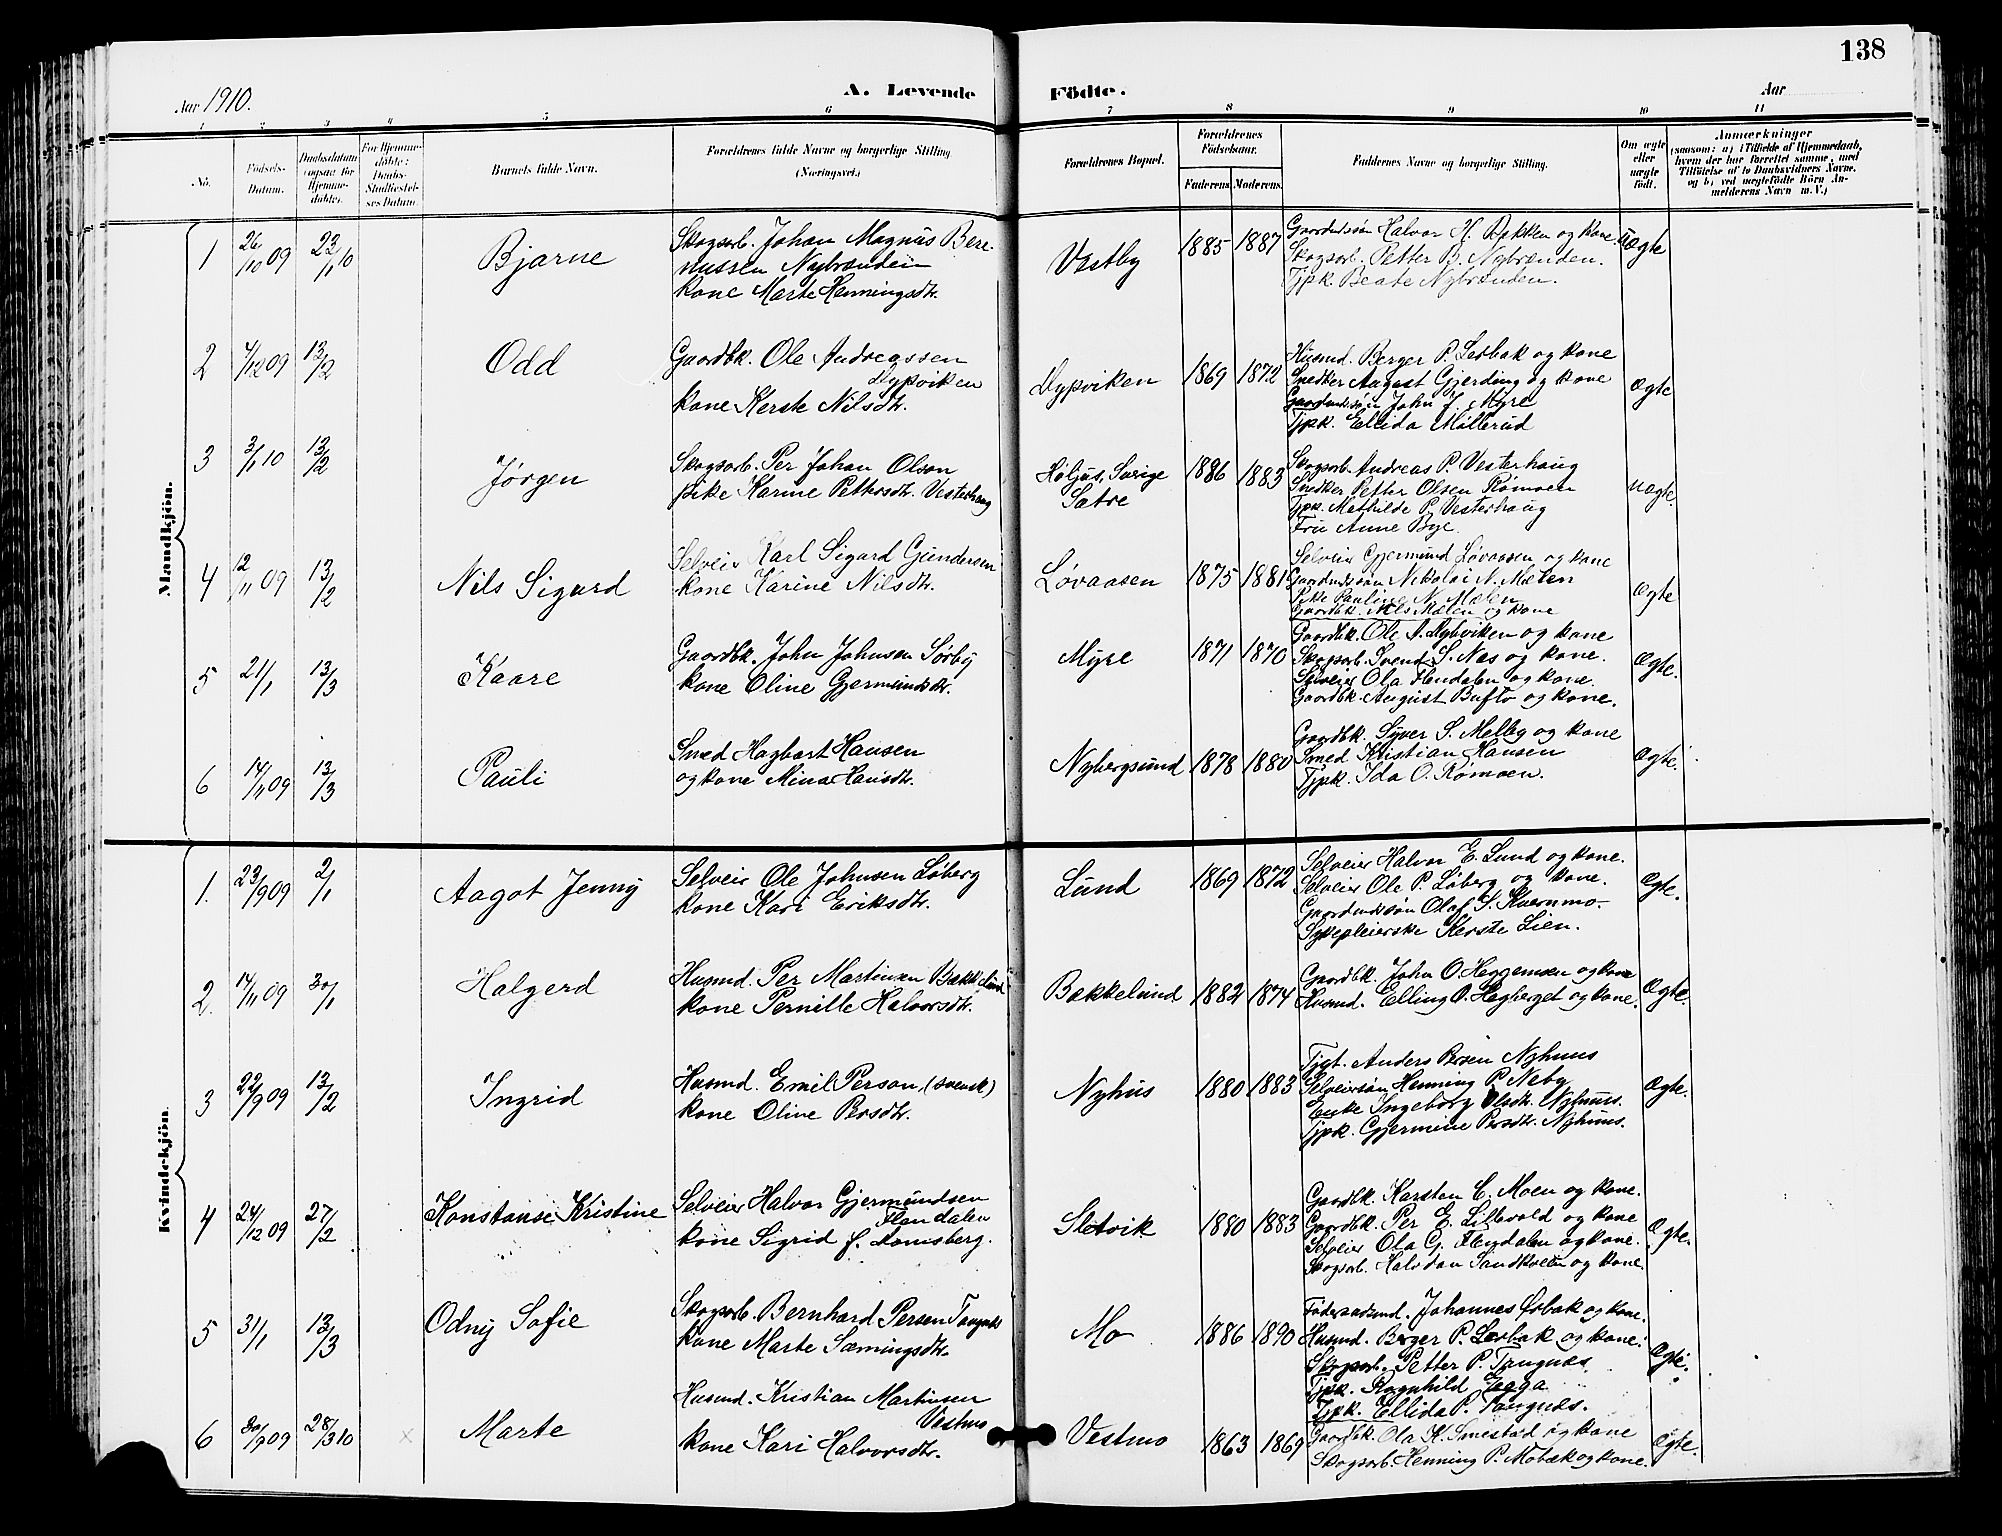 138
Aar 1910.
A. Levende Födte.
Aar
1 2 3 4 5 6 7 8 9 10 11
No.
Födsels-Datum.
Daabsdatum (ogsaa for Hjemmedöbte).
For Hjemmedöbte: Daabs-Stadfæstelses Datum.
Barnets fulde Navn.
Forældrenes fulde Navne og borgerlige Stilling (Næringsvei.)
Forældrenes Bopæl.
Forældrenes Födselsaar.
Faderens. Moderens.
Faddernes Navne og borgerlige Stilling.
Om ægte eller uægte födt.
Anmærkninger
(saasom: a) i Tilfælde af Hjemmedaab, hvem der har forrettet samme, med Tilföielse af to Daabsvidners Navne, og b) ved uægtefödte Börn Anmelderens Navn m. V.)
Mandkjön.
1 26/10 09 23/1 10 Bjarne
Skogsarb. Johan Magnus Bere-
nussen Nybrænden
kone Marte Henningsdtr.
Vestby 1885 1887
Gaardmdssøn Halvor H. Bakken og kone.
Skogsarb. Petter B. Nybrænden.
Tjpk. Beate Nybrænden.
Ægte
2 4/12 09 13/2 Odd
Gaardbk. Ole Andreassen
Dypviken
kone Kerste Nilsdtr.
Dypviken 1869 1872
Husmd. Berger P. Lerbak og kone
Snedker August Gjerding og kone
Gaardmdssøn John J. Myre
Tjpk. Ellida Møllerud
Ægte
3 3/1 10 13/2 Jørgen
Skogsarb. Per Johan Olson
pike Karine Pettersdtr. Vesterhaug
Høljus, Sverige
Sætre
1886 1883
Skogsarb. Andreas P. Vesterhaug
Snedker Petter Olsen Rømoen
Tjpk. Mathilde P. Vesterhaug
Fru Anne Bye
uægte.
4 12/11 09 13/2 Nils Sigurd
Selveir Karl Sigard Gundersen
kone Karine Nilsdtr.
Løvaasen 1875 1881
Selveir Gjermund Løvaasen og kone
Gaardmdssøn Nikolai N. Mælen
Pike Pauline N. Mælen
Gaardbk. Nils Mælen og kone
Ægte
5 21/1 13/3 Kaare
Gaardbk. John Johnsen Sørby
kone Oline Gjermundsdtr.
Myre 1871 1870
Gaardbk. Ole A. Dybviken og kone
Skogsarb. Svend S. Næs og kone.
Selveier Ola Flendalen og kone.
Gaardbk. August Bufto og kone.
Ægte.
6 14/11 09 13/3 Pauli
Smed Hagbart Hansen
og kone Mina Hansdtr.
Nybergsund 1878 1880
Gaardbk. Syver S. Melby og kone
Smed Kristian Hansen
Tjpk. Ida O. Rømoen.
Ægte.
Kvindekjön.
1. 23/9 09 2/1 Aagot Jenny
Selveir Ole Johnsen Løberg
kone Kari Eriksdtr.
Lund 1869 1872
Selveier Halvor E. Lund og kone.
Selveier Ole P. Løberg og kone.
Gaardmdssøn Olaf S. Kvernmo-
Sykepleierske Kerste Lien.
Ægte.
2. 14/11 09 30/1 Halgerd
Husmd. Per Martinsen Bakkelund
kone Pernille Halvorsdtr.
Bakkelund 1882 1874
Gaardbk. John O. Heggemsen og kone
Husmd. Elling O. Hagberget og kone.
Ægte.
3 22/9 09 13/2 Ingrid
Husmd. Emil Person, (svensk)
kone Oline Persdtr.
Nyhus 1880 1883
Tjgt. Anders Persen Nyhuus
Selveiersøn Henning P. Neby
Enke Ingeborg Olsdtr. Nyhuus.
Tjpk. Gjermine Persdtr. Nyhuus.
Ægte.
4 24/12 09 27/2 Konstanse Kristine
Selveier Halvor Gjermundsen
Flendalen
kone Sigrid f. Lomsberg.
Sletvik 1880 1883
Gaardbk. Karsten C. Moen og kone.
Gaardbk. Per E. Lillevold og kone
Selveier Ola G. Flendalen og kone.
Skogsarb. Halvdan Sandkveen og kone.
Ægte.
5 31/1 13/3 Odny Sofie
Skogsarb. Bernhard Persen Tangnæs
kone Marte Sæmingsdtr.
Mo 1886 1890
Føderaadsmd. Johannes Ørbak og kone.
Husmd. Berger P. Lerbak og kone.
Skogsarb. Petter P. Tangnæs
Tjpk. Ragnhild Egga
Tjpk. Ellida P. Tangnæs.
Ægte.
6 30/9 09 28/3 10 x Marte
Husmd. Kristian Martinsen
Vestmo
kone Kari Halvorsdtr.
Vestmo 1863 1869
Gaardbk. Ola K. Smestad og kone
Skogsarb. Henning P. Mobæk og kone.
Ægte.